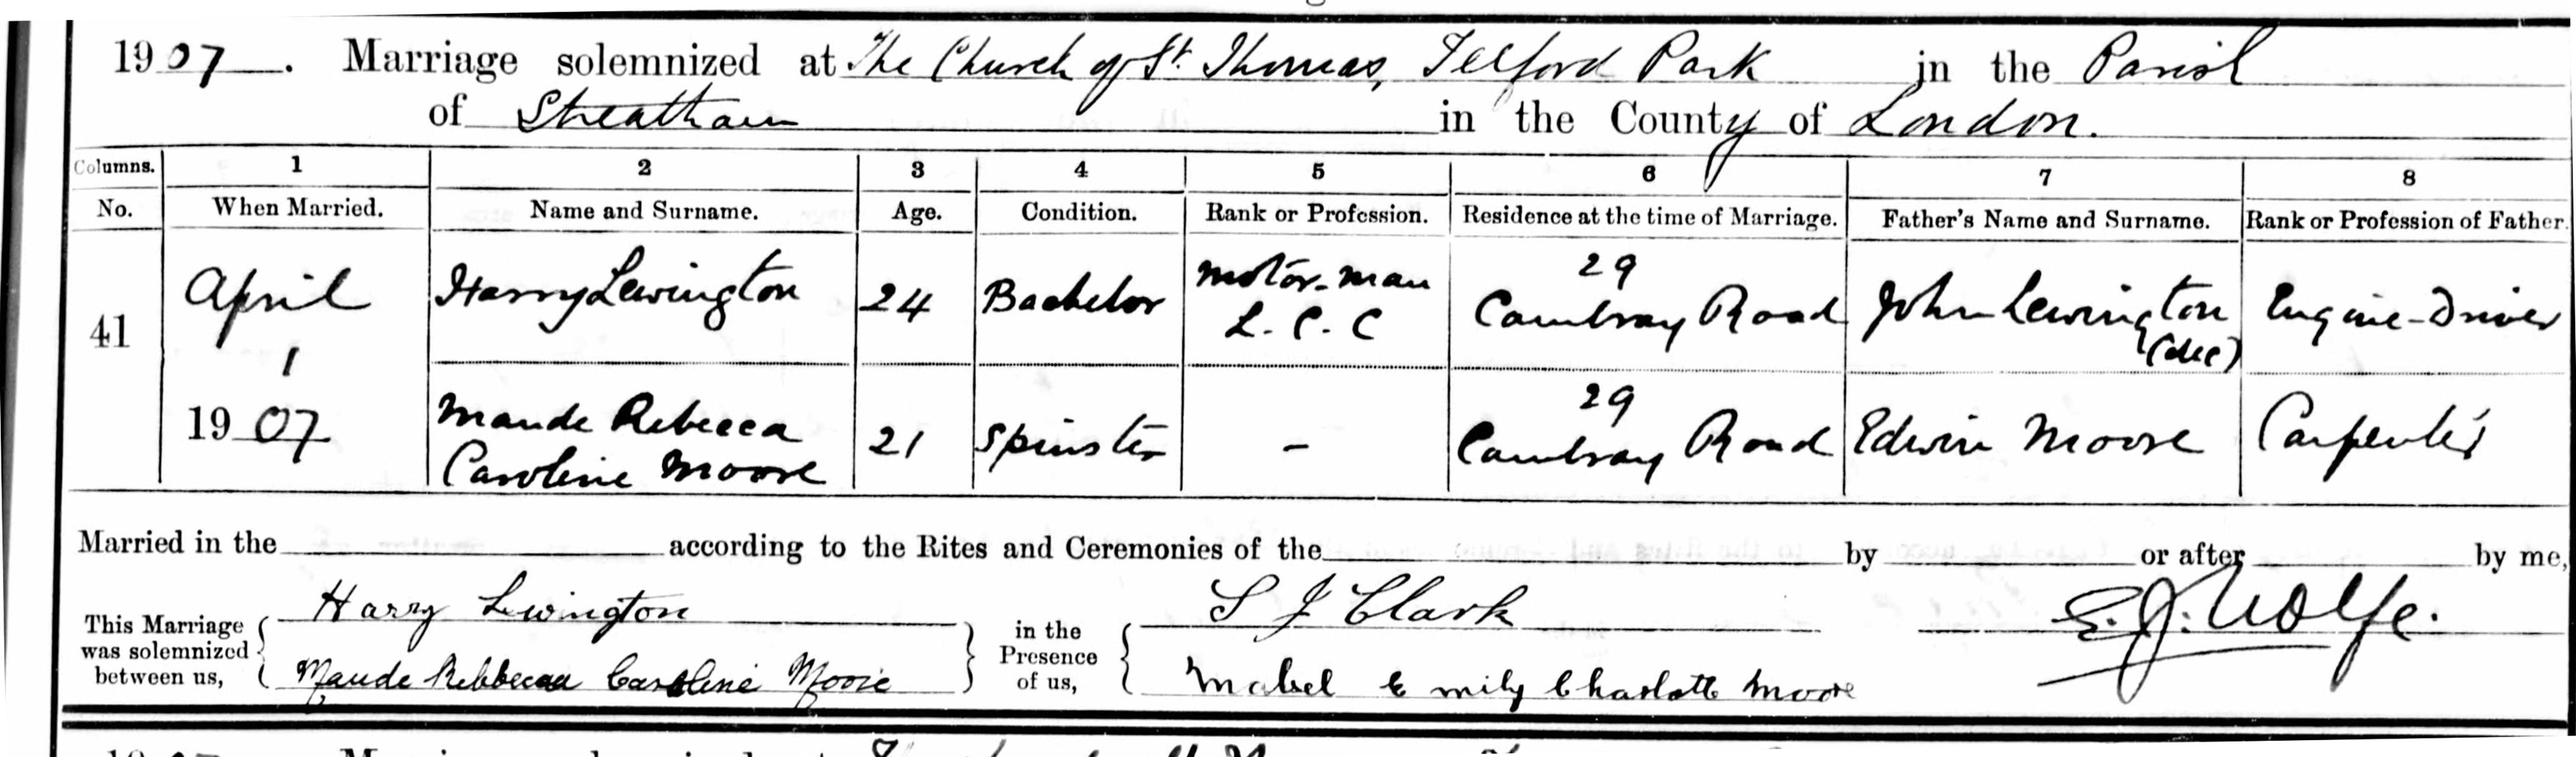 1907. Marriage solemnized at The Church of St. Thomas, Telford Park in the Parish
of Streatham in the County of London.
Columns. 1 2 3 4 5 6 7 8
No. When Married. Name and Surname. Age. Condition. Rank or Profession. Residence at the time of Marriage. Father's Name and Surname. Rank or Profession of Father.
41 April 1 1907 Harry Lewington 24 Bachelor Motor-man L.C.C 29 Cambray Road John Lewington (dec) Engine-Driver
Maude Rebecca Caroline Moore 21 Spinster - 29 Cambray Road Edwin Moore Carpenter
Married in the according to the Rites and Ceremonies of the by or after by me,
This Marriage was solemnized between us, Harry Lewington in the Presence of us, S J Clark E.J. Wolfe.
Maude Rebbecca Caroline Moore Mabel Emily Charlotte Moore